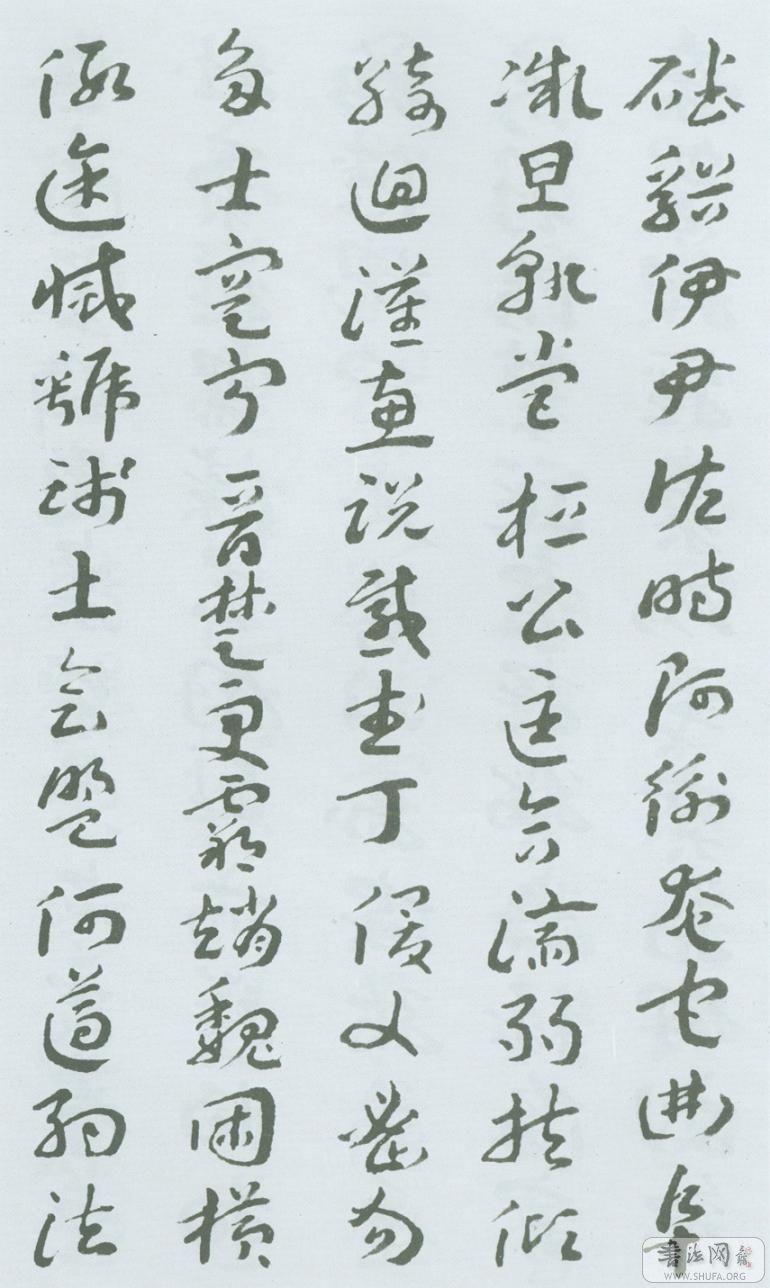 磻谿伊尹佐時阿衡奄宅曲阜
微旦孰營桓公匡合濟弱扶傾
綺迴漢惠說感武丁俊乂密勿
多士寔寧晉楚更霸趙魏困橫
假途滅虢踐土會盟何遵約法
書法网
WWW.SHUFA.ORG